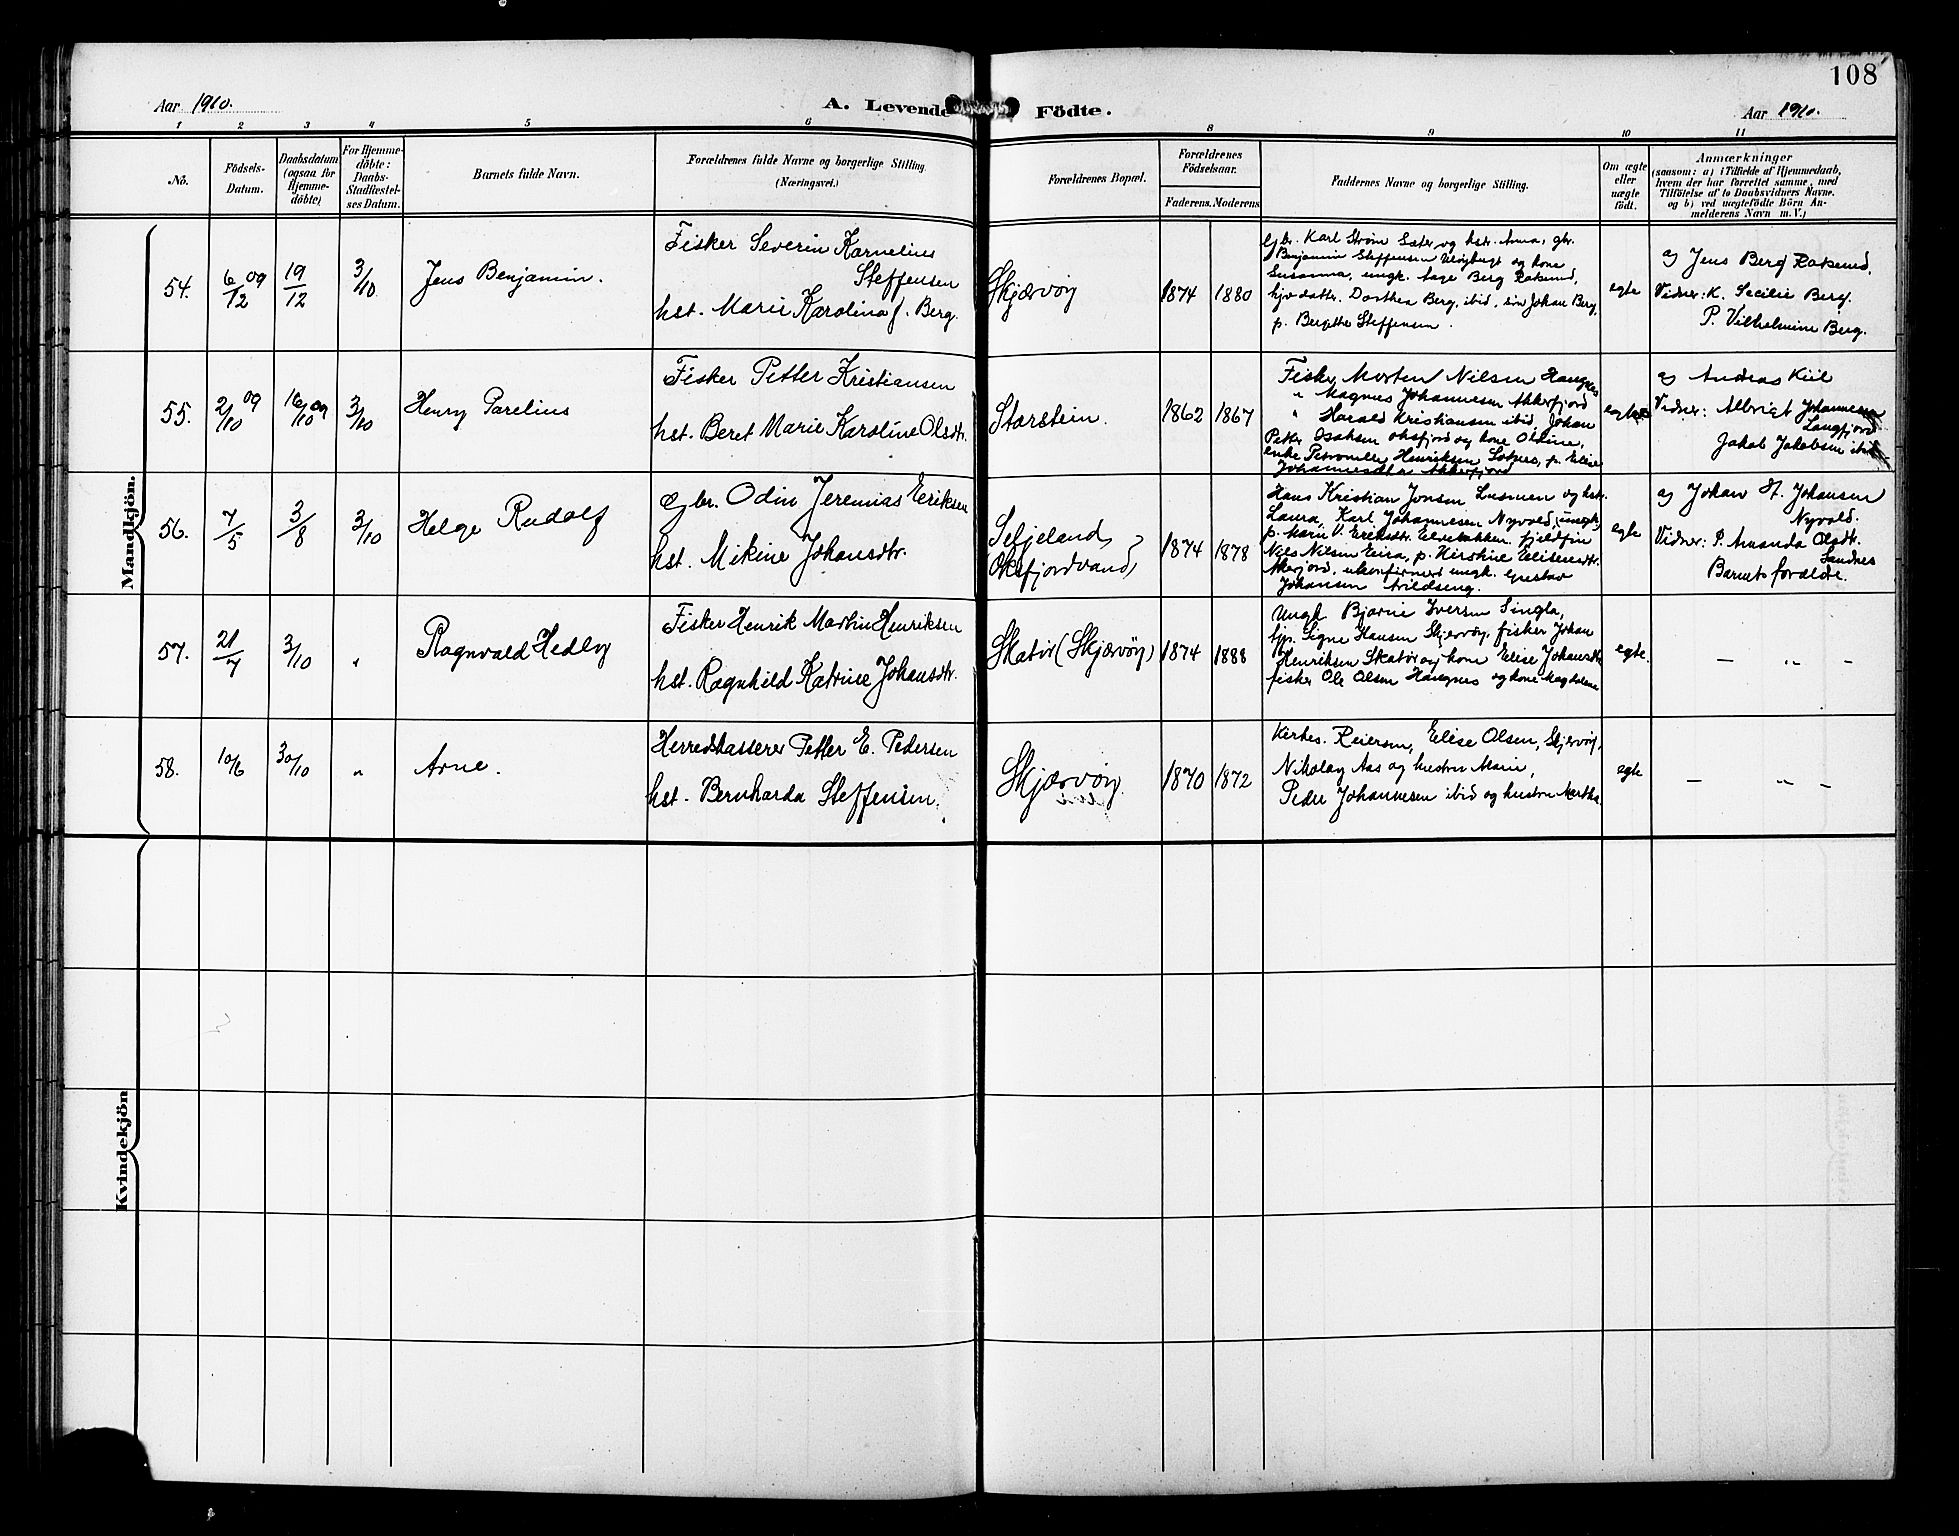 108
Aar 1910.
A. Levende
Födte.
Aar 1910.
1 2 3 4 5 6 8 9 10 11
No.
Födsels-
Datum.
Daabsdatum
(ogsaa for
Hjemme-
döbte)
For Hjemme-
döbte:
Daabs-
Stadfæstel-
ses Datum.
Barnets fulde Navn.
Forældrenes fulde Navne og borgerlige Stilling.
(Næringsvei.)
Forældrenes Bopæl.
Forældrenes
Födselsaar.
Faderens. Moderens
Faddernes Navne og borgerlige Stilling.
Om ægte
eller
uægte
födt.
Anmærkninger
(saasom: a) i Tilfælde af Hjemmedaab,
hvem der har forrettet samme, med
Tilföielse af to Daabsvidners Navne.
og b) ved uægtefödte Börn An-
melderens Navn m. V.)
Mandkjön.
54. 6/12 09 19/12 3/10 Jens Benjamin.
Fisker Severin Kornelius
Steffensen
hst. Marie Karolina f. Berg.
Skjærvöy 1874 1880
Gbr. Karl Ström Sæter og hstr. Anna, gbr.
Benjamin Steffensen og kone
Susanna, ungk. Aage Berg Rakkenes,
Dorthea Berg, ibid, Johan Berg,
p. Bergethe Steffensen.
egte
a) Jens Berg
Vidner: K. Secilie Berg.
P. Vilhelmine Berg.
55. 2/10 09 16/10 09 3/10 Henry Parelius
Fisker Petter Kristiansen
hst. Beret Marie Karoline Olsdtr.
Storstein. 1862 1867
Fisker Morten Nilsen Haugnes
" Magnus Johannesen Akkerfjord
" Harald Kristiansen ibid, Johan
Petter Isaksen Oksfjord og kone Oldine,
enke Petronelle Henriksen p. Elise
Johannesdtr Akkerfjord
egte
a) Andreas Kiil
Vidner: Albrigt Johannesen
Langfjord
Jakob Jakobsen ibid
56. 7/5 3/8 3/10 Helge Rudolf
Gbr. Odin Jeremias Eriksen
hst. Mikine Johansdtr.
Seljeland,
Oksfjordvand, 1874 1878
Hans Kristian Jonsen og hstr.
Laura, Karl Johannesen Nyvold, (ungk)
p. Marie V. Eriksdtr. Elvebakken. fjeldfin
Nils Nilsen Eira, p. Kirstine
Akerfjord, ukonfirmerd ungk. Gustav
Johansen
egte
a) Johan H. Johansen
Nyvold.
Vidner: P. Amanda Olsdtr.
Sandnes
Barnets forældre.
57. 21/7 3/10 " Ragnvald Hedley
Fisker Henrik Martin Henriksen
hst. Ragnhild Katrine Johansdtr.
Skatör (Skjærvöy) 1874 1888
Ungk. Bjarne Iversen Singla,
tjp. Signe Hansen Skjervöy, fisker Johan
Henriksen Skatör og kone Elise Johansdtr
fisker Ole Olsen Haugnes og kone Magdalene
egte.
— " —
58. 10/6 30/10 " Arne.
Herredskasserer Petter E. Pedersen
hst. Bernharda Steffensen.
Skjærvöy. 1870 1872
Kirkes. Reiersen, Elise Olsen, Skjervöy,
Nikolay Aas og hustru Marie,
Peder Johannesen ibid og hustru Martha.
egte
— " —
Kvindekjön